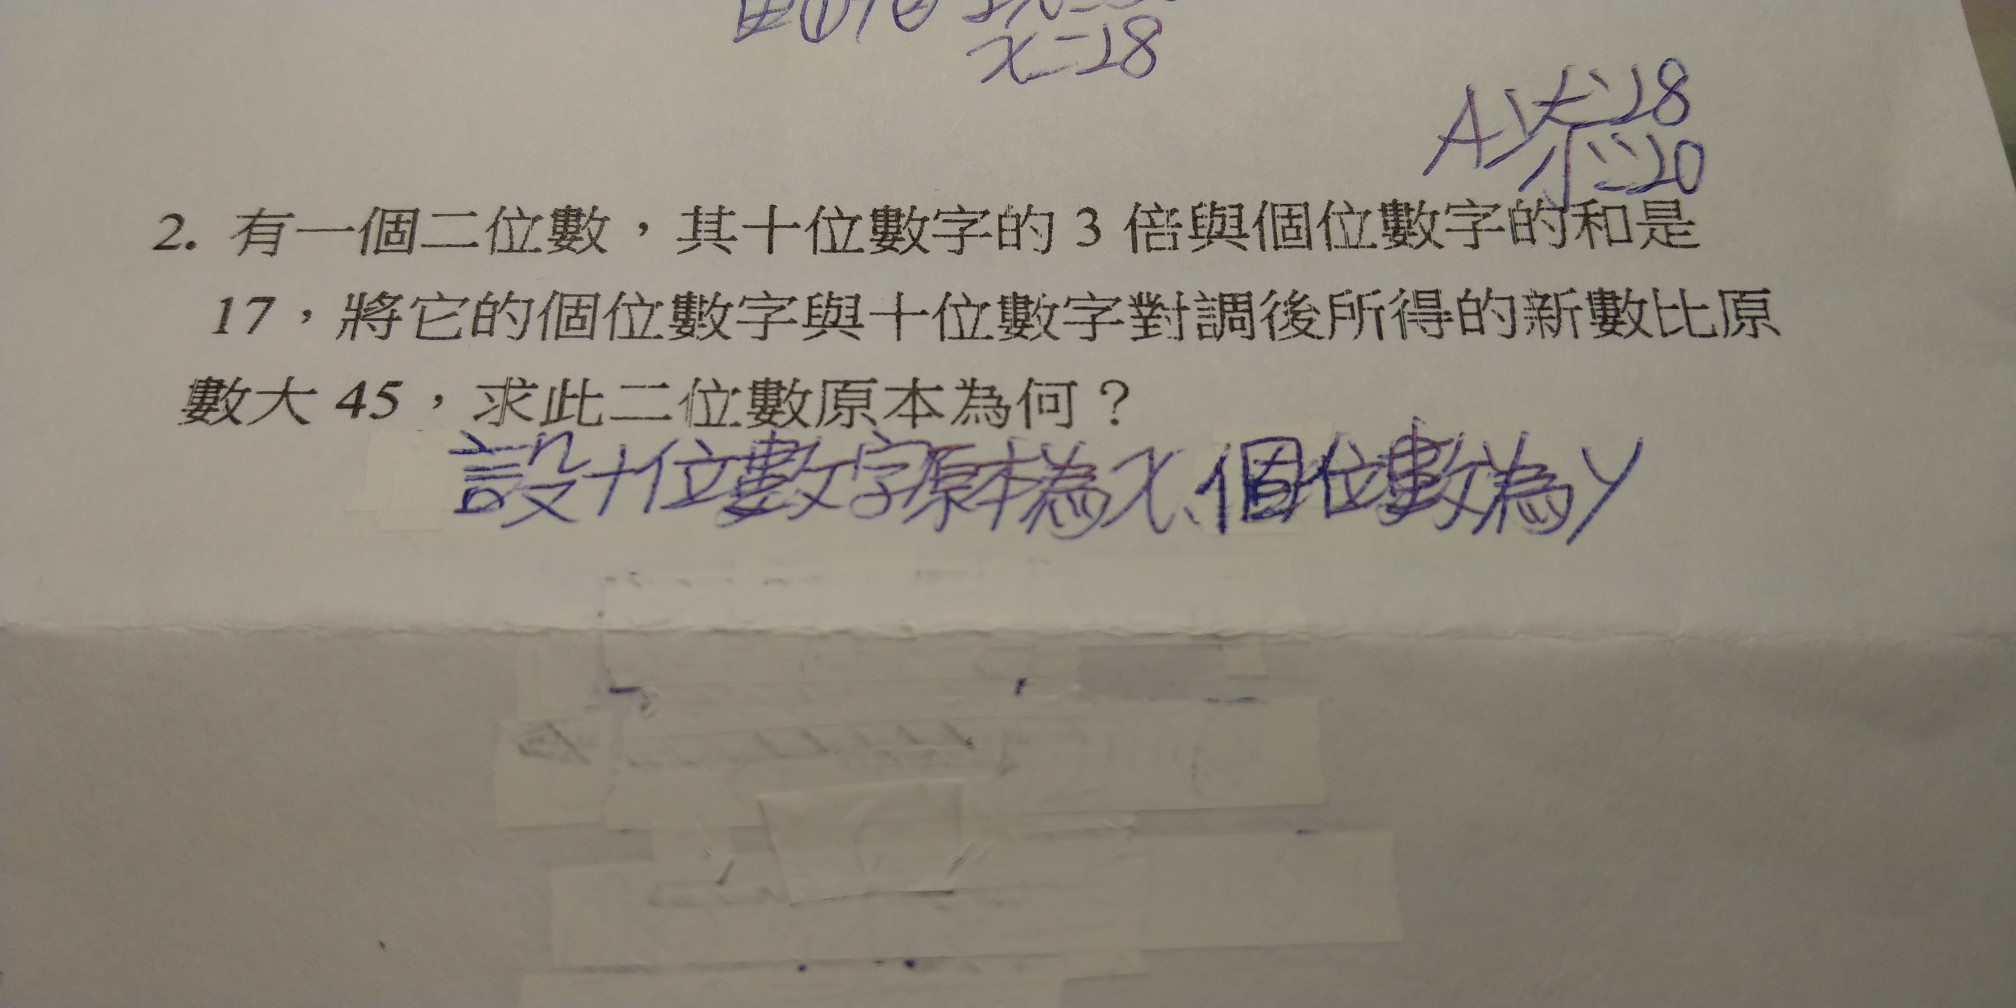 x=18
A:大:18
小:20
2. 有一個二位數，其十位數字的 3 倍與個位數字的和是
17，將它的個位數字與十位數字對調後所得的新數比原
數大 45，求此二位數原本為何？
設十位數字原本為x、個位數為y